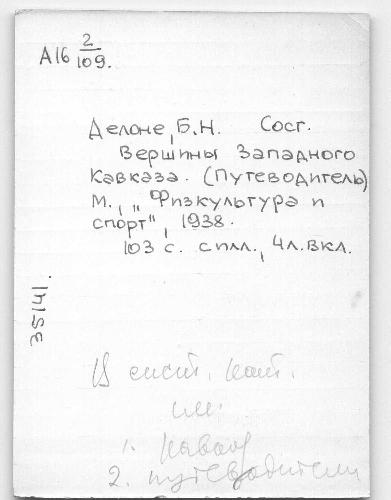 А16 2/109.
Делоне, Б.Н. Сост.
Вершины Западного
Кавказа. (Путеводитель)
М., „Физкультура и
спорт", 1938.
103 с. с илл., 4 л. вкл.
35141.
В сист. кат.
см.
1. Кавказ
2. путеводители